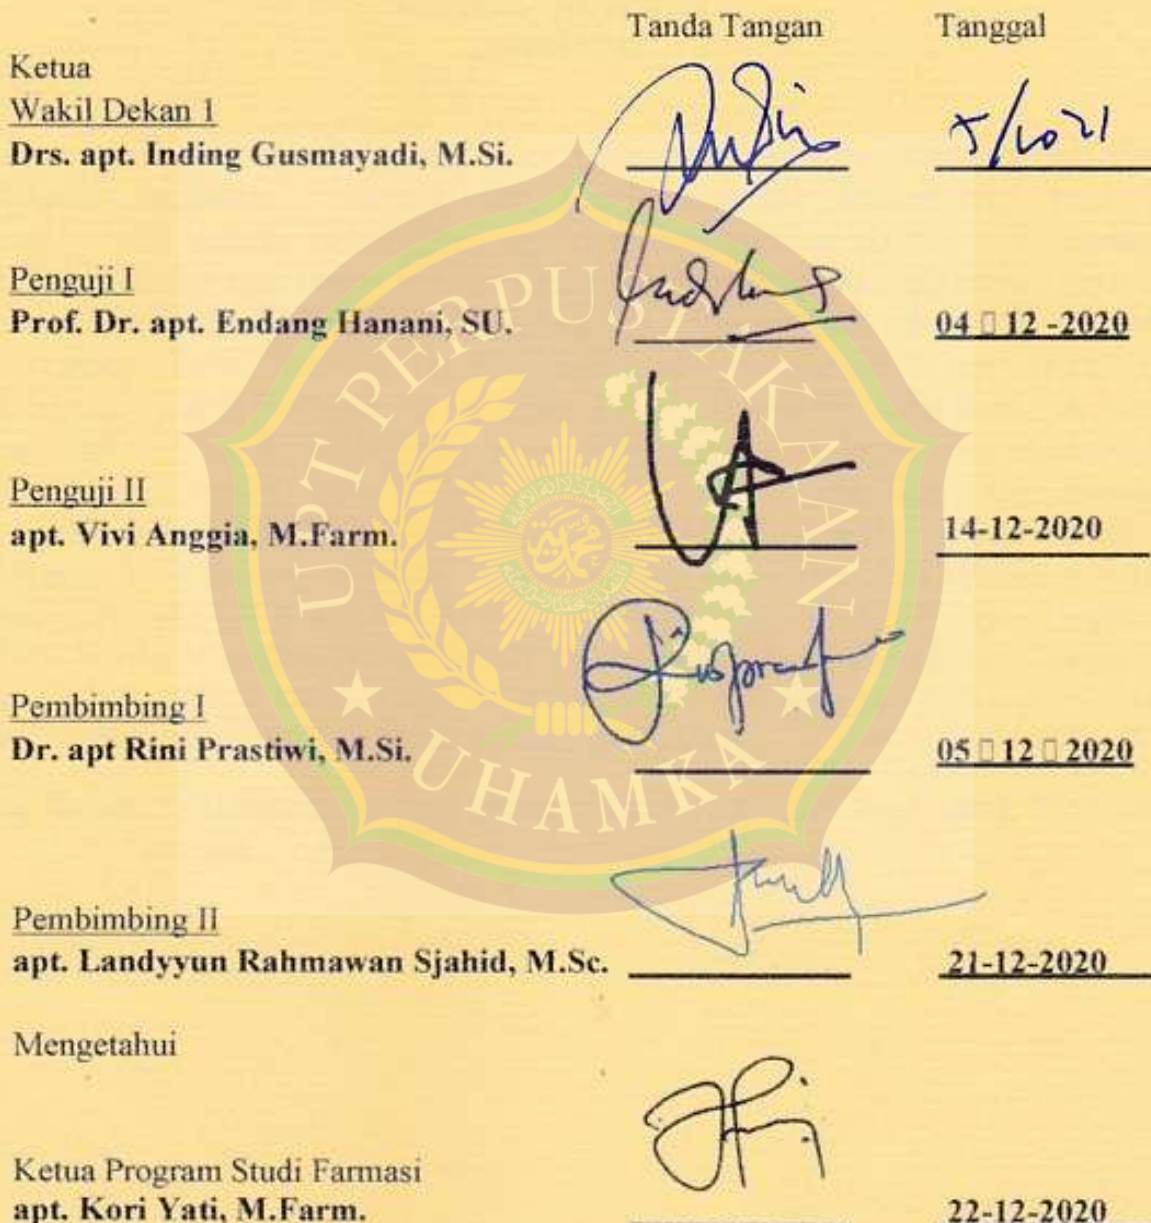 Tanda Tangan Tanggal
Ketua
Wakil Dekan 1
Drs. apt. Inding Gusmayadi, M.Si.
Penguji I
Prof. Dr. apt. Endang Hanani, SU. 04 12 -2020
Penguji II
apt. Vivi Anggia, M.Farm. 14-12-2020
Pembimbing I
Dr. apt Rini Prastiwi, M.Si. 05 12 2020
Pembimbing II
apt. Landyyun Rahmawan Sjahid, M.Sc. 21-12-2020
Mengetahui
Ketua Program Studi Farmasi
apt. Kori Yati, M.Farm. 22-12-2020
UPT PERPUSTAKAAN
UHAMKA